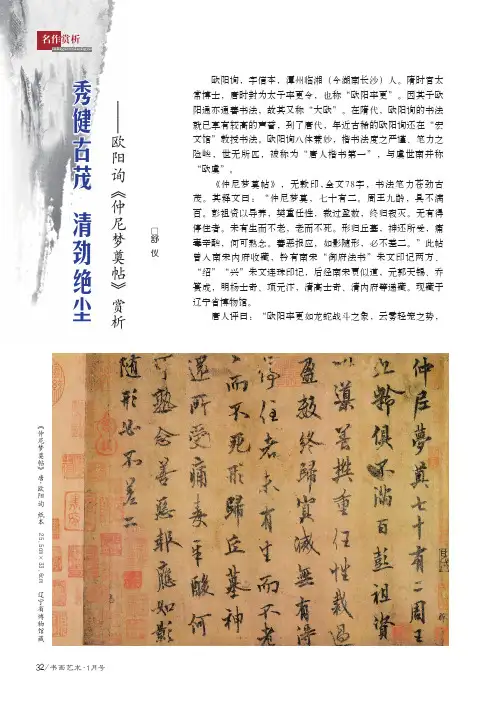 名作赏析
秀健古茂 清劲绝尘
——欧阳询《仲尼梦奠帖》赏析
□舒 仪
欧阳询，字信本，潭州临湘（今湖南长沙）人。隋时官太
常博士，唐时封为太子率更令，也称“欧阳率更”。因其子欧
阳通亦通善书法，故其又称“大欧”。在隋代，欧阳询的书法
就已享有较高的声誉，到了唐代，年近古稀的欧阳询还在“宏
文馆”教授书法。欧阳询八体兼妙，楷书法度之严谨，笔力之
险峭，世无所匹，被称为“唐人楷书第一”，与虞世南并称
“欧虞”。
《仲尼梦奠帖》，无款印，全文78字，书法笔力苍劲古
茂。其释文曰：“仲尼梦奠，七十有二。周王九龄，具不满
百。彭祖资以导养，樊重任性，裁过盈数，终归寂灭。无有得
停住者。未有生而不老，老而不死。形归丘墓，神还所受，痛
毒辛酸，何可熟念。善恶报应，如影随形，必不差二。”此帖
曾入南宋内府收藏，钤有南宋“御府法书”朱文印记两方、
“绍”“兴”朱文连珠印记，后经南宋贾似道，元郭天锡、乔
篑成，明杨士奇、项元汴，清高士奇、清内府等递藏。现藏于
辽宁省博物馆。
唐人评曰：“欧阳率更如龙蛇战斗之象，云雾轻笼之势，
仲尼夢奠七十有二周王
九齡俱不滿百彭祖資
以導養樊重任性裁過
盈數終歸冥滅無有得
停住者未有生而不老
〻而不死形歸丘墓神
還所受痛毒辛酸何
可熟念善惡報應如影
隨形必不差二
《仲尼梦奠帖》 唐·欧阳询 纸本 25.5cm×31.6cm 辽宁省博物馆藏
32/书画艺术·1月号